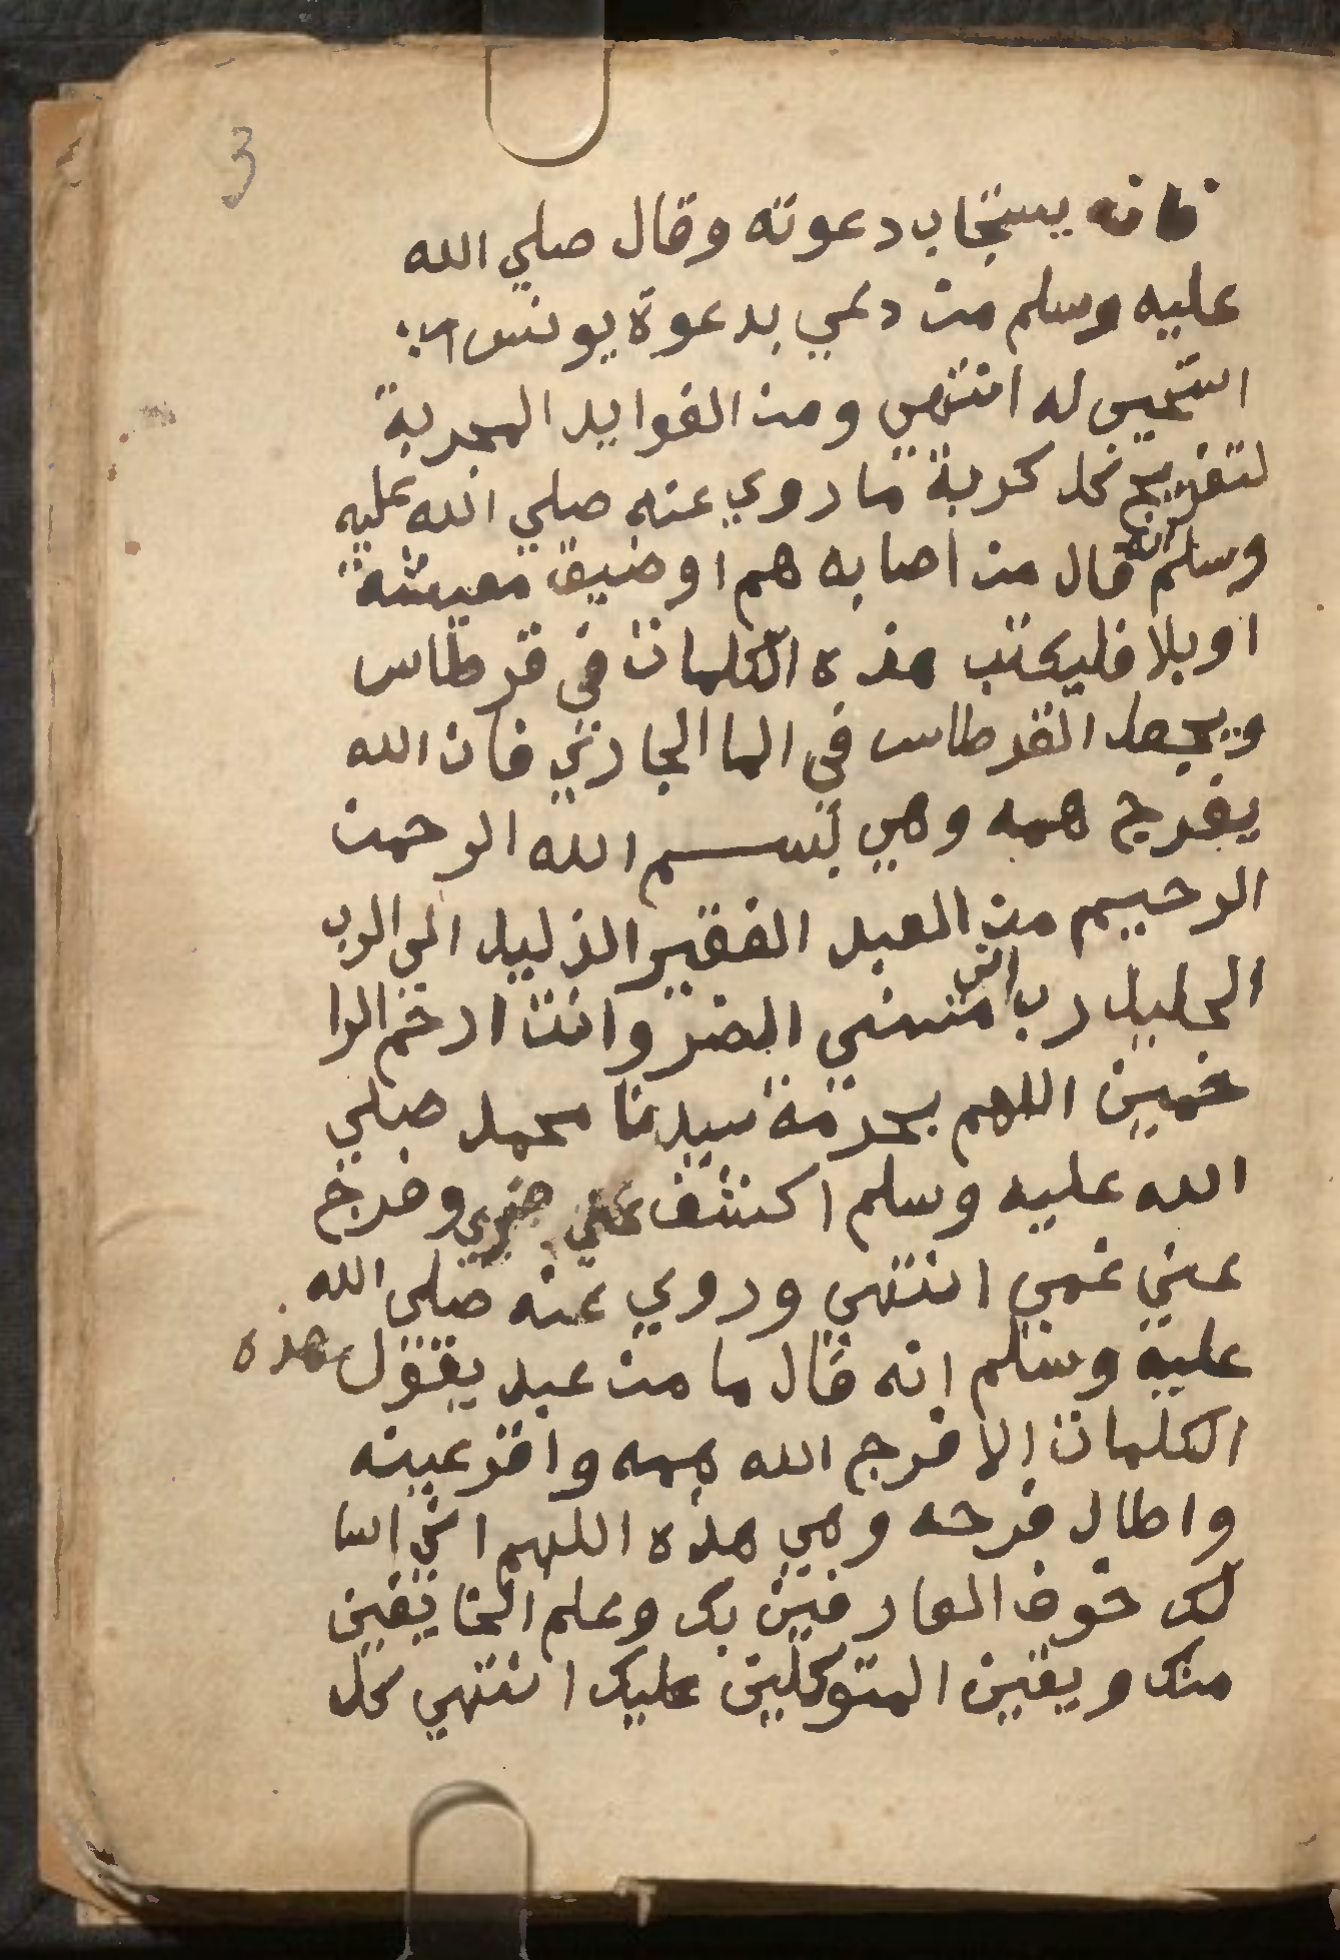 3
فانه يستجاب دعوته وقال صلي الله
عليه وسلم من دعي بدعوة يونس
استجيب له انتهي ومن الفوايد المجربة
لتفريج كل كربة ما روي عنه صلي الله عليه
وسلم انه قال من اصابه هم او ضيق معيشة
او بلا فليكتب هذه الكلمات في قرطاس
ويجعل القرطاس في الما الجاري فان الله
يفرج همه وهي بسم الله الرحمن
الرحيم من العبد الفقير الذليل الي الرب
الجليل رب اني مسني الضر وانت ارحم الرا
حمين اللهم بحرمة سيدنا محمد صلي
الله عليه وسلم اكشف عني ضري وفرج
عني غمي انتهي وروي عنه صلي الله
عليه وسلم انه قال ما من عبد يقول هذه
الكلمات الا فرج الله همه واقر عينه
واطال فرحه وهي هذه اللهم اني اسا
لك خوف العارفين بك وعلم الخايفين
منك ويقين المتوكلين عليك انتهي كل